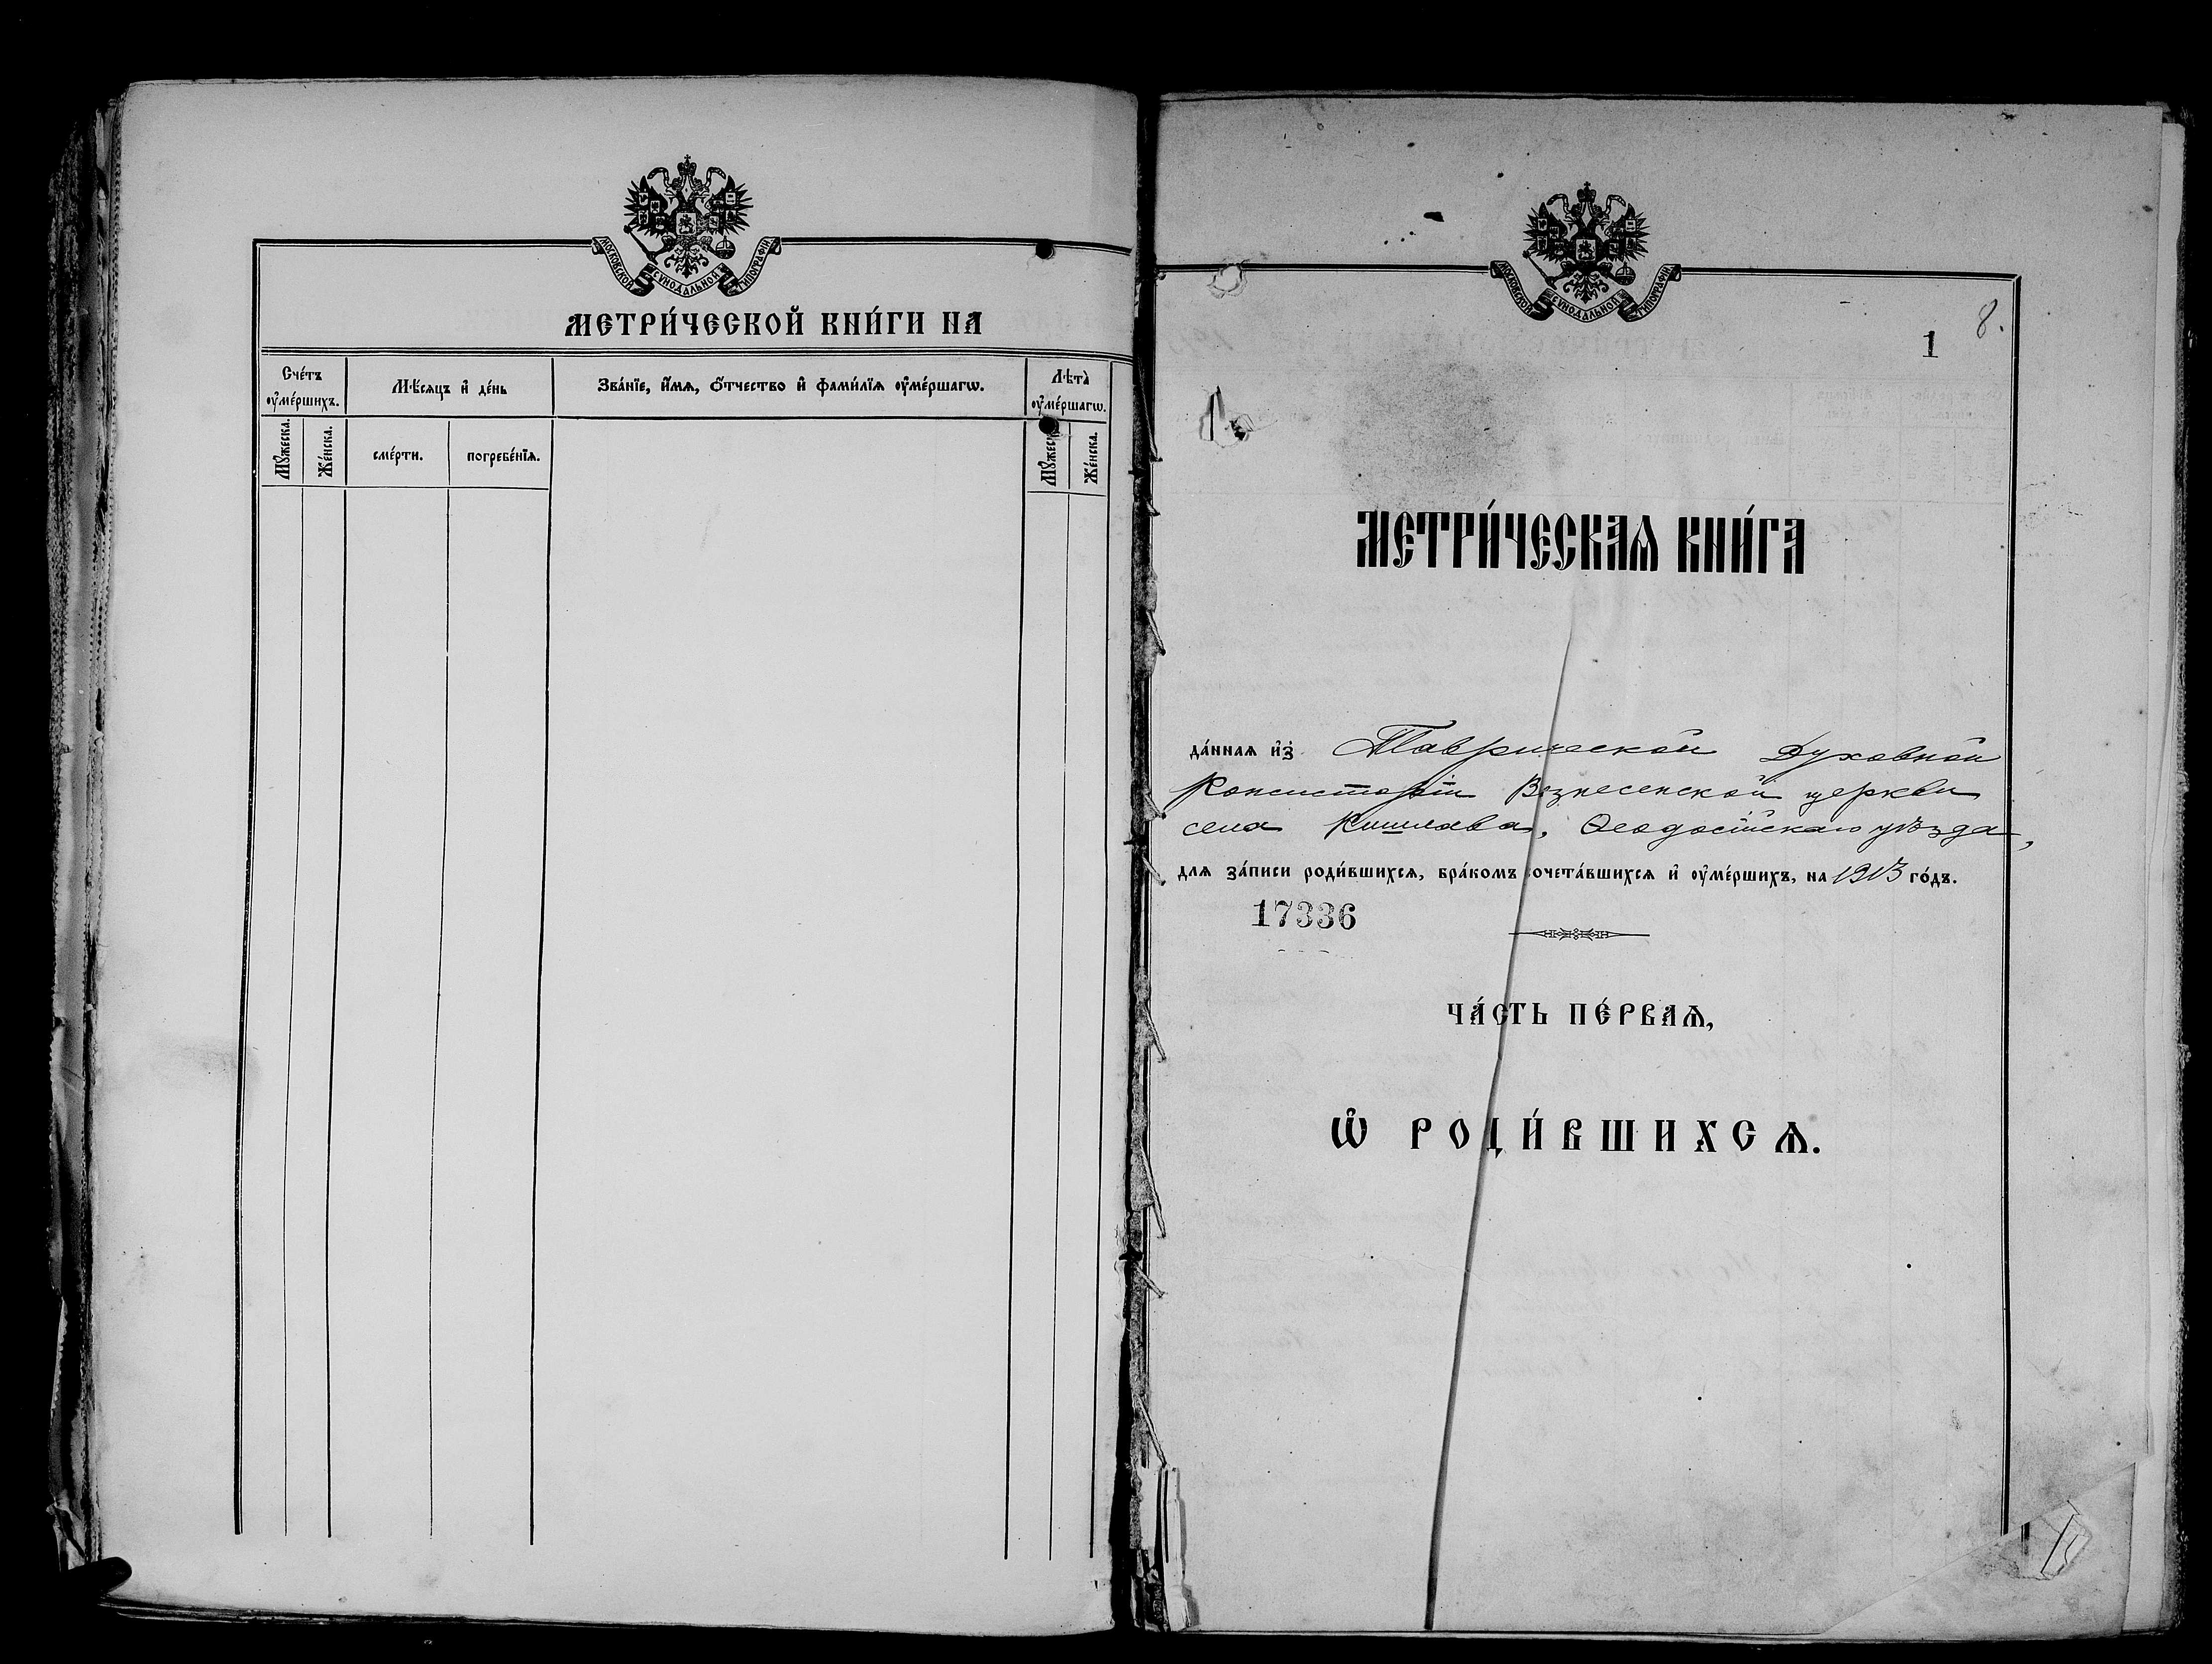 МОСКОВСКОЙ СѴНОДАЛЬНОЙ ТИПОГРАФІИ
МЕТРИ́ЧЕСКОЙ КНИ́ГИ НА
Сче́тъ ᲂу҆ме́ршихъ.
Мѣ́сяцъ и҆ де́нь
Зва́нїе, и҆́мѧ, ѻ҆́тчество и҆ фами́лїѧ ᲂу҆ме́ршагѡ.
Лѣта̀ ᲂу҆ме́ршагѡ.
Мꙋ́жеска.
Же́нска.
сме́рти.
погребе́нїѧ.
Мꙋ́жеска.
Же́нска.
МОСКОВСКОЙ СѴНОДАЛЬНОЙ ТИПОГРАФІИ
8.
1
МЕТРИ́ЧЕСКАѦ КНИ́ГА
да́ннаѧ и҆з̾ Таврической Духовной
Консисторіи Вознесенской церкви
села Кишлава, Ѳеодосійскаго уѣзда,
для за́писи роди́вшихсѧ, бра́комъ сочета́вшихсѧ и҆ ᲂу҆ме́ршихъ, на 1913 го́дъ.
17336
ЧА́СТЬ ПЕ́РВАѦ,
Ѡ҆ РОДИ́ВШИХСѦ.